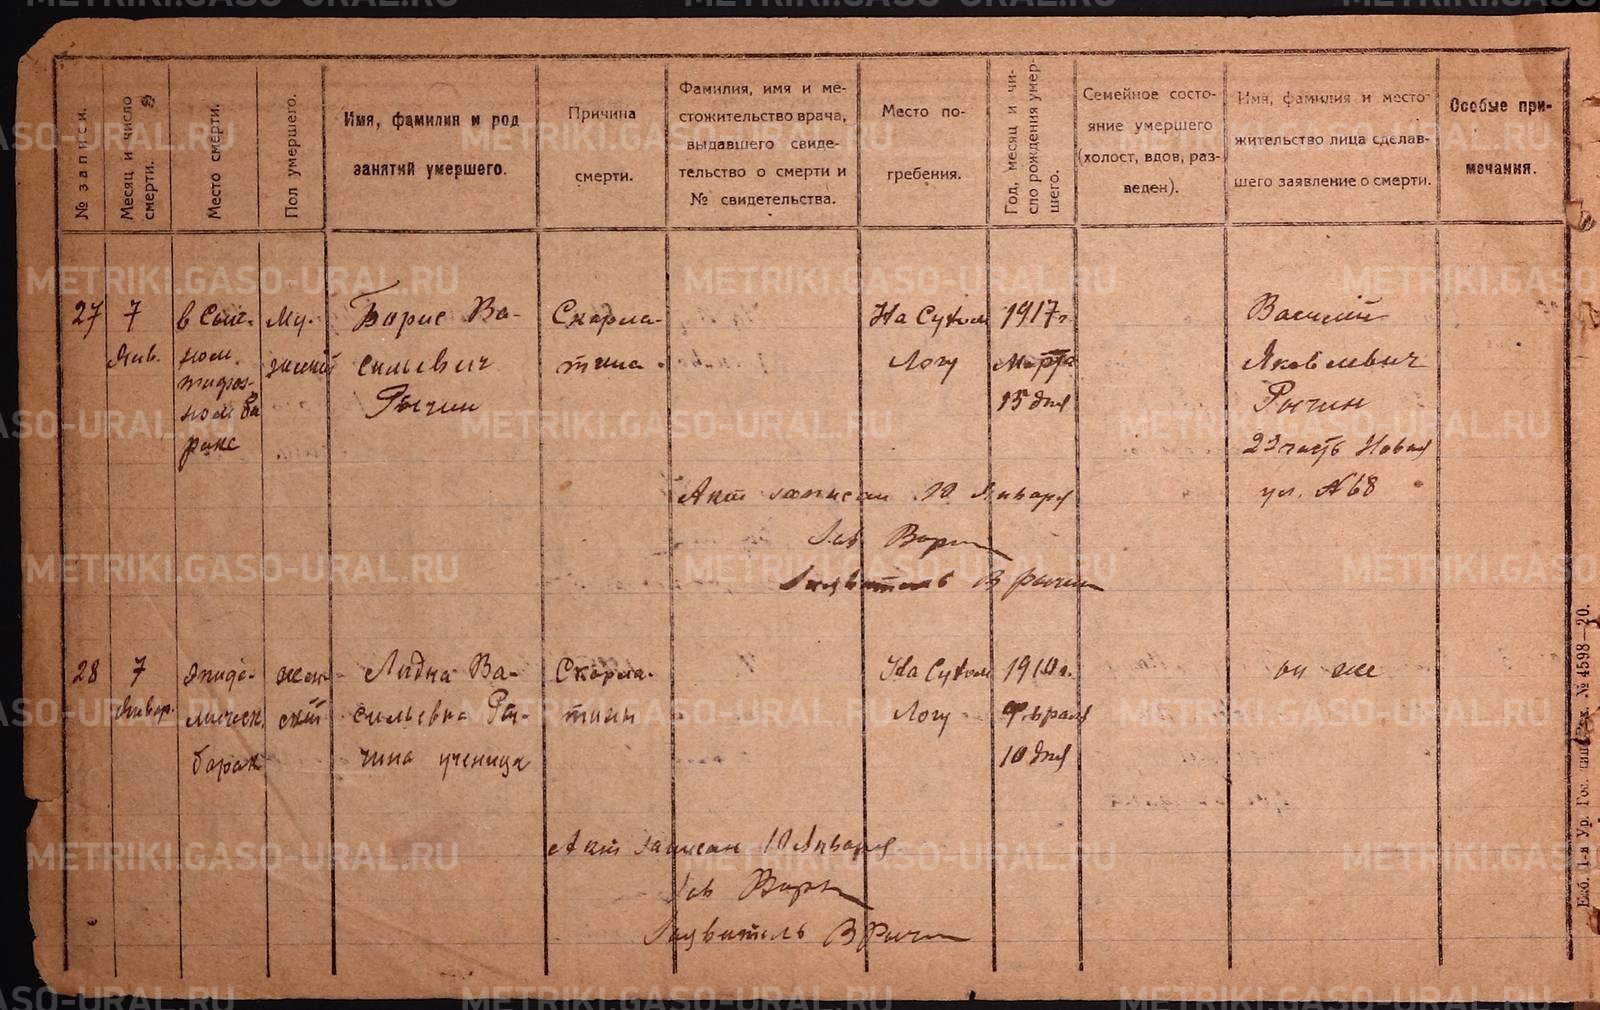 № записи.
Месяц и число
смерти.
Место смерти.
Пол умершего.
Имя, фамилия и род
занятий умершего.
Причина
смерти.
Фамилия, имя и ме-
стожительство врача,
выдавшего свиде-
тельство о смерти и
№ свидетельства.
Место по-
гребения.
Год, месяц и чи-
сло рождения умер-
шего.
Семейное состо-
яние умершего
(холост, вдов, раз-
веден).
Имя, фамилия и место-
жительство лица сделав-
шего заявление о смерти.
Особые при-
мечания.
27
7
Янв.
в Сып-
ном
тифоз-
ном ба
раке
Му-
жской
Борис Ва-
сильевич
Рычин
Скарла-
тина.
На Сухом
Логу
1917 г.
Марта
15 дня
Василий
Яковлевич
Рычин
2я часть Новая
ул. №68
Акт записан 10 Января
Зав
Заявитель В Рычин
28
7
Январ.
эпиде-
мическ
барак
жен-
ский
Лидия Ва-
сильевна Ры-
чина ученица
Скарла-
тины
На Сухом
Логу
1910 г.
Февраля
10 дня
он же
Акт записан 10 Января
Зав
Заявитель В Рычин
Екб. 1-я Ур. Гос. тип. Зак. № 4598—20.
METRIKI.GASO-URAL.RU